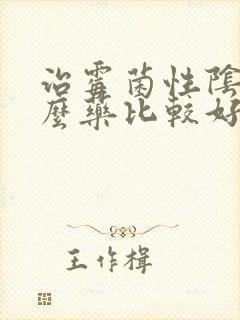 治霉菌性陰
麼藥比較好
王作楫